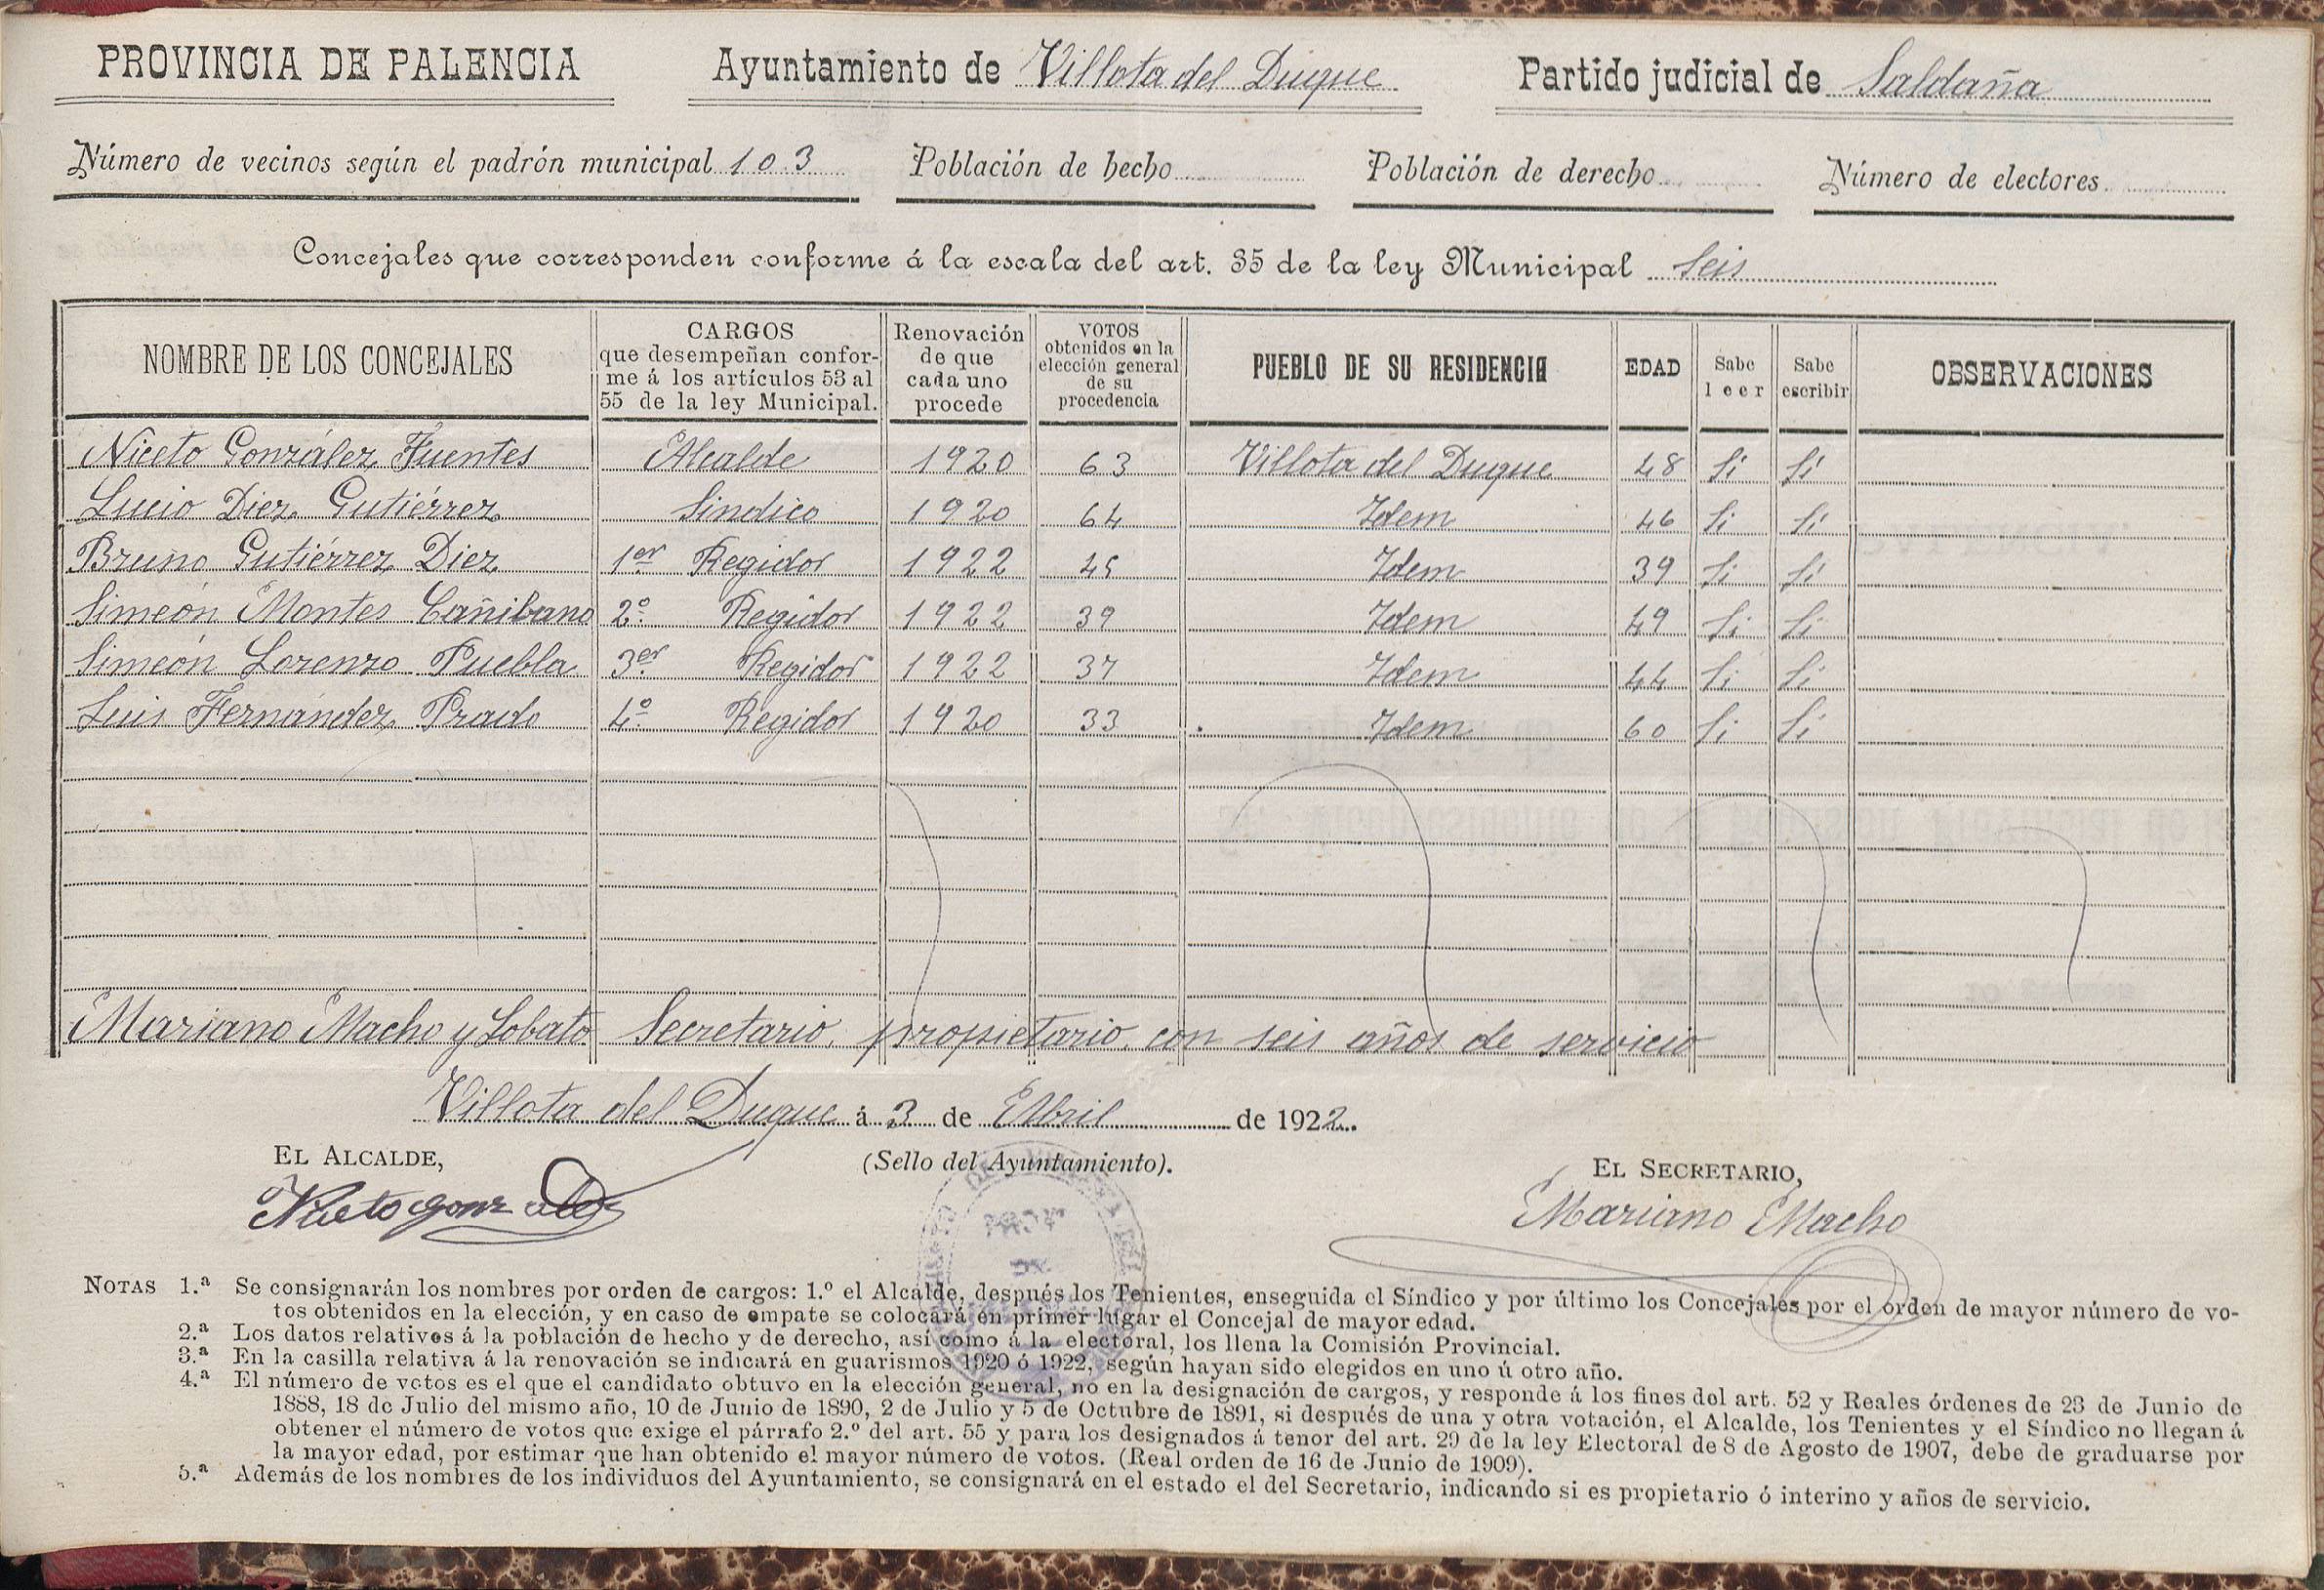 PROVINCIA DE PALENCIA Ayuntamiento de Villota del Duque Partido judicial de Saldaña
Número de vecinos según el padrón municipal 103 Población de hecho Población de derecho Número de electores
Concejales que corresponden conforme á la escala del art. 35 de la ley Municipal Seis
NOMBRE DE LOS CONCEJALES CARGOS que desempeñan confor- me á los artículos 53 al 55 de la ley Municipal. Renovación de que cada uno procede VOTOS obtenidos en la elección general de su procedencia PUEBLO DE SU RESIDENCIA EDAD Sabe leer Sabe escribir OBSERVACIONES
Niceto González Fuentes Alcalde 1920 63 Villota del Duque 48 Si Sí
Lucio Diez Gutiérrez Síndico 1920 64 Idem 46 Si Sí
Bruno Gutiérrez Diez 1er Regidor 1922 45 Idem 39 Si Sí
Simeón Montes Cañibano 2º Regidor 1922 39 Idem 49 Si Si
Simeón Lorenzo Puebla 3er Regidor 1922 37 Idem 44 Si Si
Luis Fernández Prado 4º Regidor 1920 33 Idem 60 Si Sí
Mariano Macho y Lobato Secretario propietario con seis años de servicio
Villota del Duque á 3 de Abril de 1922.
EL ALCALDE, (Sello del Ayuntamiento). EL SECRETARIO,
Niceto Gonzalez Mariano Macho
NOTAS 1.ª Se consignarán los nombres por orden de cargos: 1.º el Alcalde, después los Tenientes, enseguida el Síndico y por último los Concejales por el orden de mayor número de vo-
tos obtenidos en la elección, y en caso de empate se colocará en primer lugar el Concejal de mayor edad.
2.ª Los datos relativos á la población de hecho y de derecho, así como á la electoral, los llena la Comisión Provincial.
3.ª En la casilla relativa á la renovación se indicará en guarismos 1920 ó 1922, según hayan sido elegidos en uno ú otro año.
4.ª El número de votos es el que el candidato obtuvo en la elección general, no en la designación de cargos, y responde á los fines del art. 52 y Reales órdenes de 23 de Junio de
1888, 18 de Julio del mismo año, 10 de Junio de 1890, 2 de Julio y 5 de Octubre de 1891, si después de una y otra votación, el Alcalde, los Tenientes y el Síndico no llegan á
obtener el número de votos que exige el párrafo 2.º del art. 55 y para los designados á tenor del art. 29 de la ley Electoral de 8 de Agosto de 1907, debe de graduarse por
la mayor edad, por estimar que han obtenido el mayor número de votos. (Real orden de 16 de Junio de 1909).
5.ª Además de los nombres de los individuos del Ayuntamiento, se consignará en el estado el del Secretario, indicando si es propietario ó interino y años de servicio.